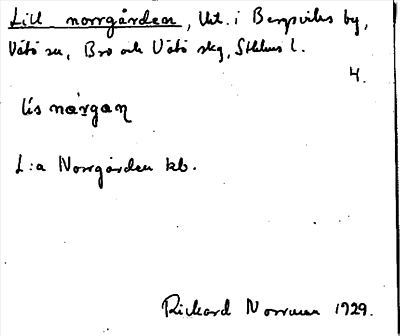 Lill norrgården, Utt. i Bergsvikens by,
Vätö sn, Bro och Vätö skg, Sthlms l.
4.
lís nárgaɳ
L:a Norrgården kb.
Rickard Norrman 1929.